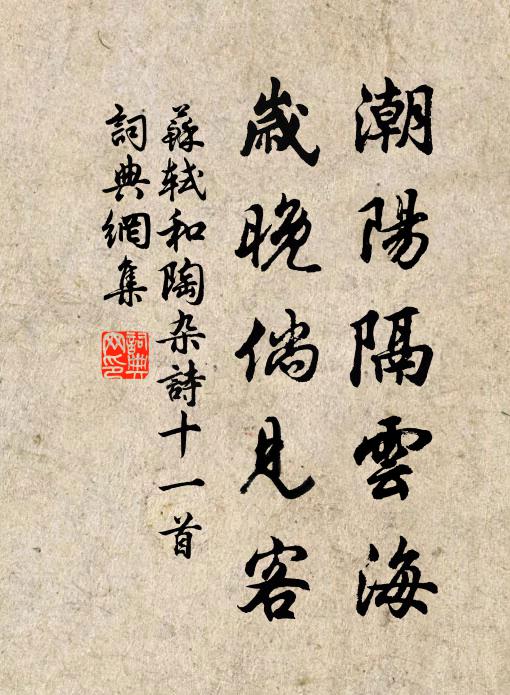 潮陽隔雲海
歲晚倘見客
蘇軾和陶杂詩十一首
詞典網集
詞典
网印